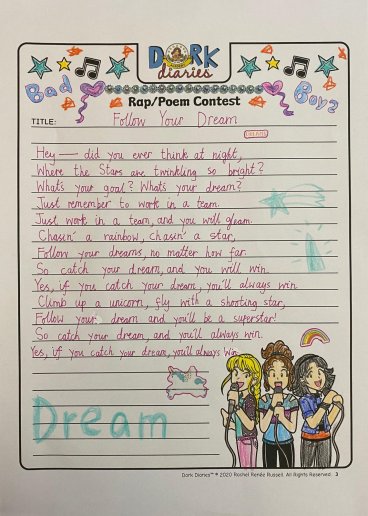 DORK
diaries
Bad
Boyz
Rap/Poem Contest
TITLE: Follow Your Dream
Hey — did you ever think at night,
Where the Stars are twinkling so bright?
Whats your goal? Whats your dream?
Just remember to work in a team.
Just work in a team, and you will gleam.
Chasin' a rainbow, chasin' a star,
Follow your dreams, no matter how far.
So catch your dream, and you will win.
Yes, if you catch your dream, you'll always win.
Climb up a unicorn, fly with a shooting star,
Follow your dream and you'll be a superstar!
So catch your dream, and you'll always win.
Yes, if you catch your dream, you'll always win.
Dream
Dork Diaries™ © 2020 Rachel Renée Russell. All Rights Reserved 3